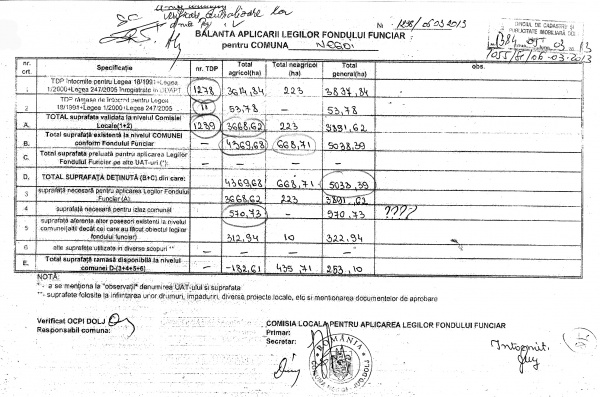 Nr 1298/05.03.2013
BALANTA APLICARII LEGILOR FONDULUI FUNCIAR
pentru COMUNA NEGOI
OFICIUL DE CADASTRU ȘI
PUBLICITATE IMOBILIARA DOLJ
nr. ort. Specificație nr. TDP Total agricol(ha) Total neagricol (ha) Total general(ha) obs.
1 TDP întocmite pentru Legea 18/1991+Legea 1/2000+Legea 247/2005 înregistrate în DDAPT 1278 3614,84 223 3837,84
2 TDP rămase de întocmit pentru Legea 18/1991+Legea 1/2000+Legea 247/2005 11 53,78 - 53,78
A. TOTAL suprafata validata la nivelul Comisiei Locale(1+2) 1289 3668,62 223 3891,62
B. Total suprafață existentă la nivelul COMUNEI conform Fondului Funciar - 4369,68 668,71 5038,39
C. Total suprafață preluată pentru aplicarea Legilor Fondului Funciar pe alte UAT-uri (*): - - - -
D. TOTAL SUPRAFAȚĂ DEȚINUTĂ (B+C) din care: 4369,68 668,71 5038,39
3 suprafață necesară pentru aplicarea Legilor Fondului Funciar (A) 3668,62 223 3891,62
4 suprafață necesară pentru izlaz comunal 570,73 - 570,73 ????
5 suprafață aferentă altor posesori existenți la nivelul comunei(alții decât cei care au făcut obiectul legilor fondului funciar) 312,94 10 322,94
6 alte suprafețe utilizate în diverse scopuri ** - - -
E. Total suprafață ramasă disponibilă la nivelul comunei D-(3+4+5+6) -182,61 435,71 253,10
NOTĂ:
* - a se menționa la "observații" denumirea UAT-ului si suprafata
**- suprafete folosite la infiintarea unor drumuri, impaduriri, diverse proiecte locale, etc si mentionarea documentelor de aprobare
Verificat OCPI DOLJ
Responsabil comuna:
COMISIA LOCALA PENTRU APLICAREA LEGILOR FONDULUI FUNCIAR
Primar:
Secretar:
ROMÂNIA
Întocmit.